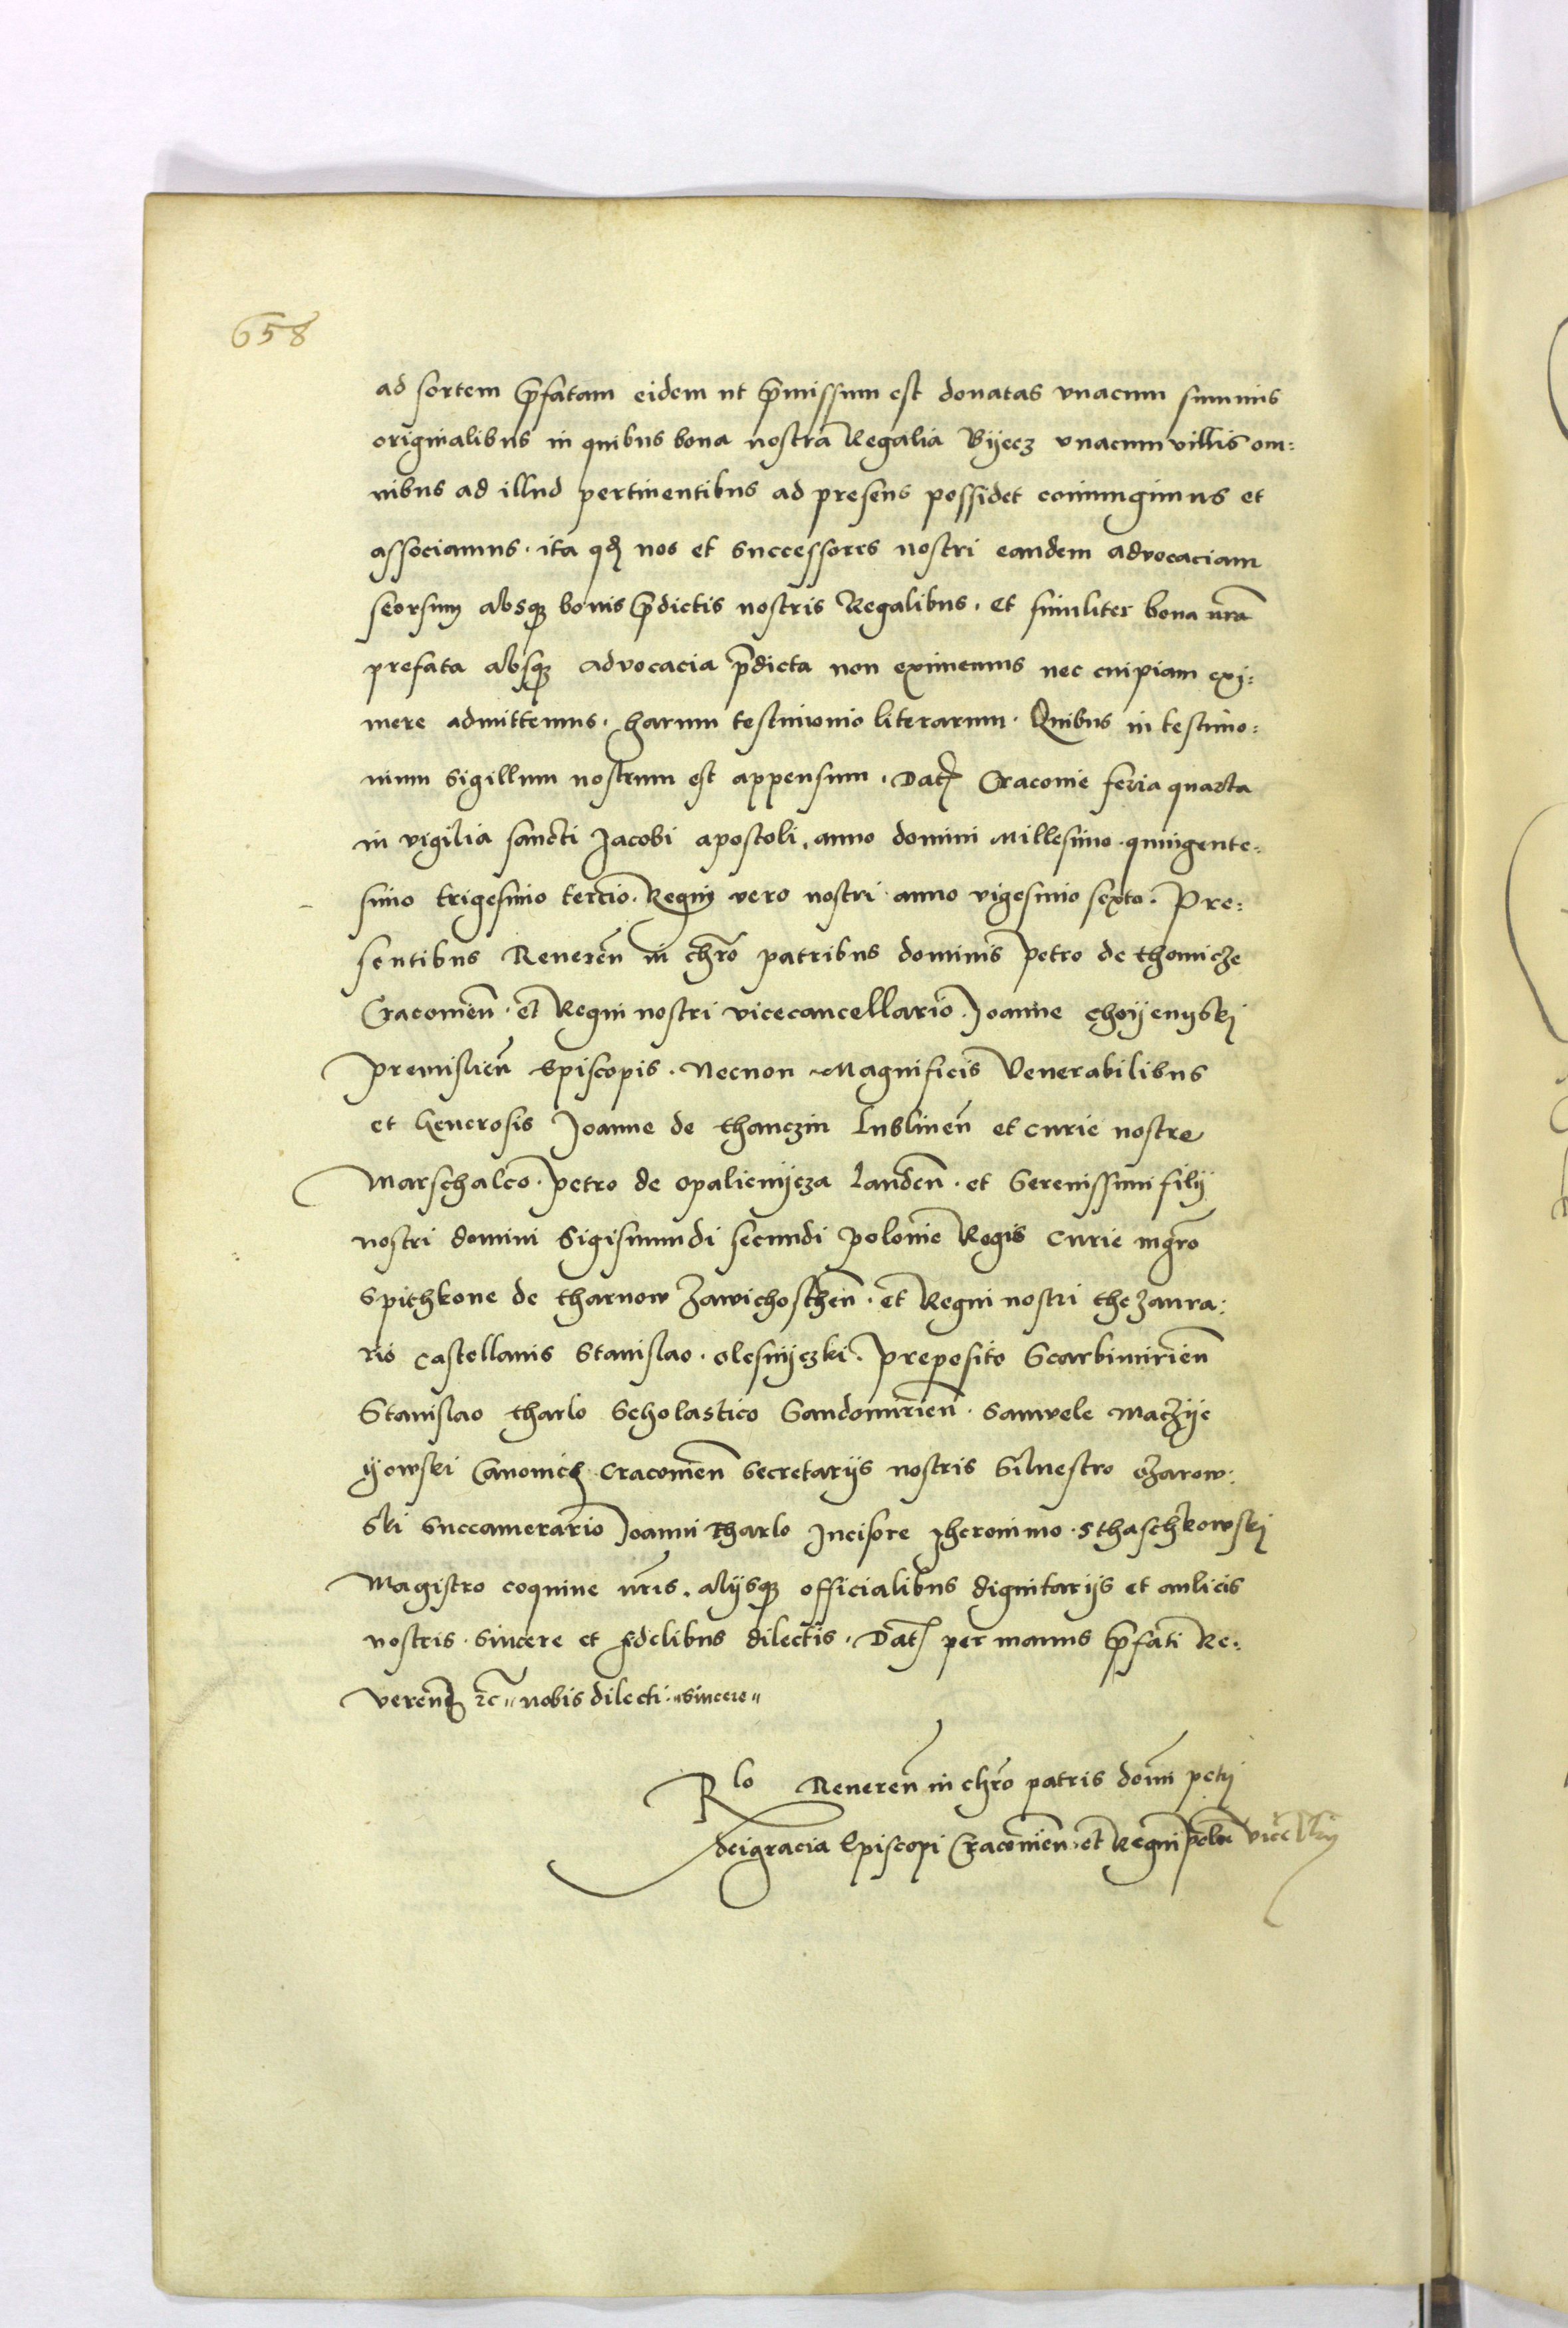 658
ad sortem p̄fatam eidem ut p̄missum est donatas vnacum summis
originalibus in quibus bona nostra Regalia Byecz vnacum villis om:
nibus ad illud pertinentibus ad presens possidet coniungimus et
associamus. ita qđ nos et successores nostri eandem advocaciam
seorsum absq bonis p̄dictis nostris Regalibus. et similiter bona nr̄a
prefata absq advocacia p̄dicta non eximemus nec cuipiam exi:
mere admittemus. harum testimonio literarum. Quibus in testimo:
nium Sigillum nostrum est appensum. Dat Cracovie feria quarta
in vigilia sancti Jacobi apostoli. anno domini Millesimo quingente:
simo trigesimo tercio. Regni vero nostri anno vigesimo sexto. Pre:
sentibus Reueren̄ in chr̄o patribus dominis Petro de thomicze
Cracouien̄. et Regni nostri vicecancellario. Joanne choyenyski
Premislien̄ Episcopis. Necnon Magnificis Venerabilibus
et Generosis Joanne de thanczin Lublinen̄ et curie nostre
Marschalco. Petro de opalienycza Landen̄. et Serenissimi filij
nostri domini Sigismundi secundi Polonie Regis Curie mgr̄o
Spithkone de tharnow Zawichosthen̄. et Regni nostri thezaura:
rio Castellanis Stanislao. olesnyczki. Preposito Scarbimirien̄
Stanislao tharlo Scholastico Sandomirien̄. Samuele Maczye
yowski Canonicis Cracouien̄ Secretarijs nostris Siluestro ozarow:
ski Succamerario Joanni Tharlo Incisore Jheronimo. Sthaschkowski
Magistro coquine nr̄is. alijsq officialibus dignitarijs et aulicis
nostris. Sincere et fidelibus dilectis. Dat per manus p̄fati Re:
verendi zc̄ nobis dilecti. sincere
Rlo Reueren̄ in chr̄o patris dom̄i petri
dei gracia Episcopi Cracouien̄. et Regni polon̄